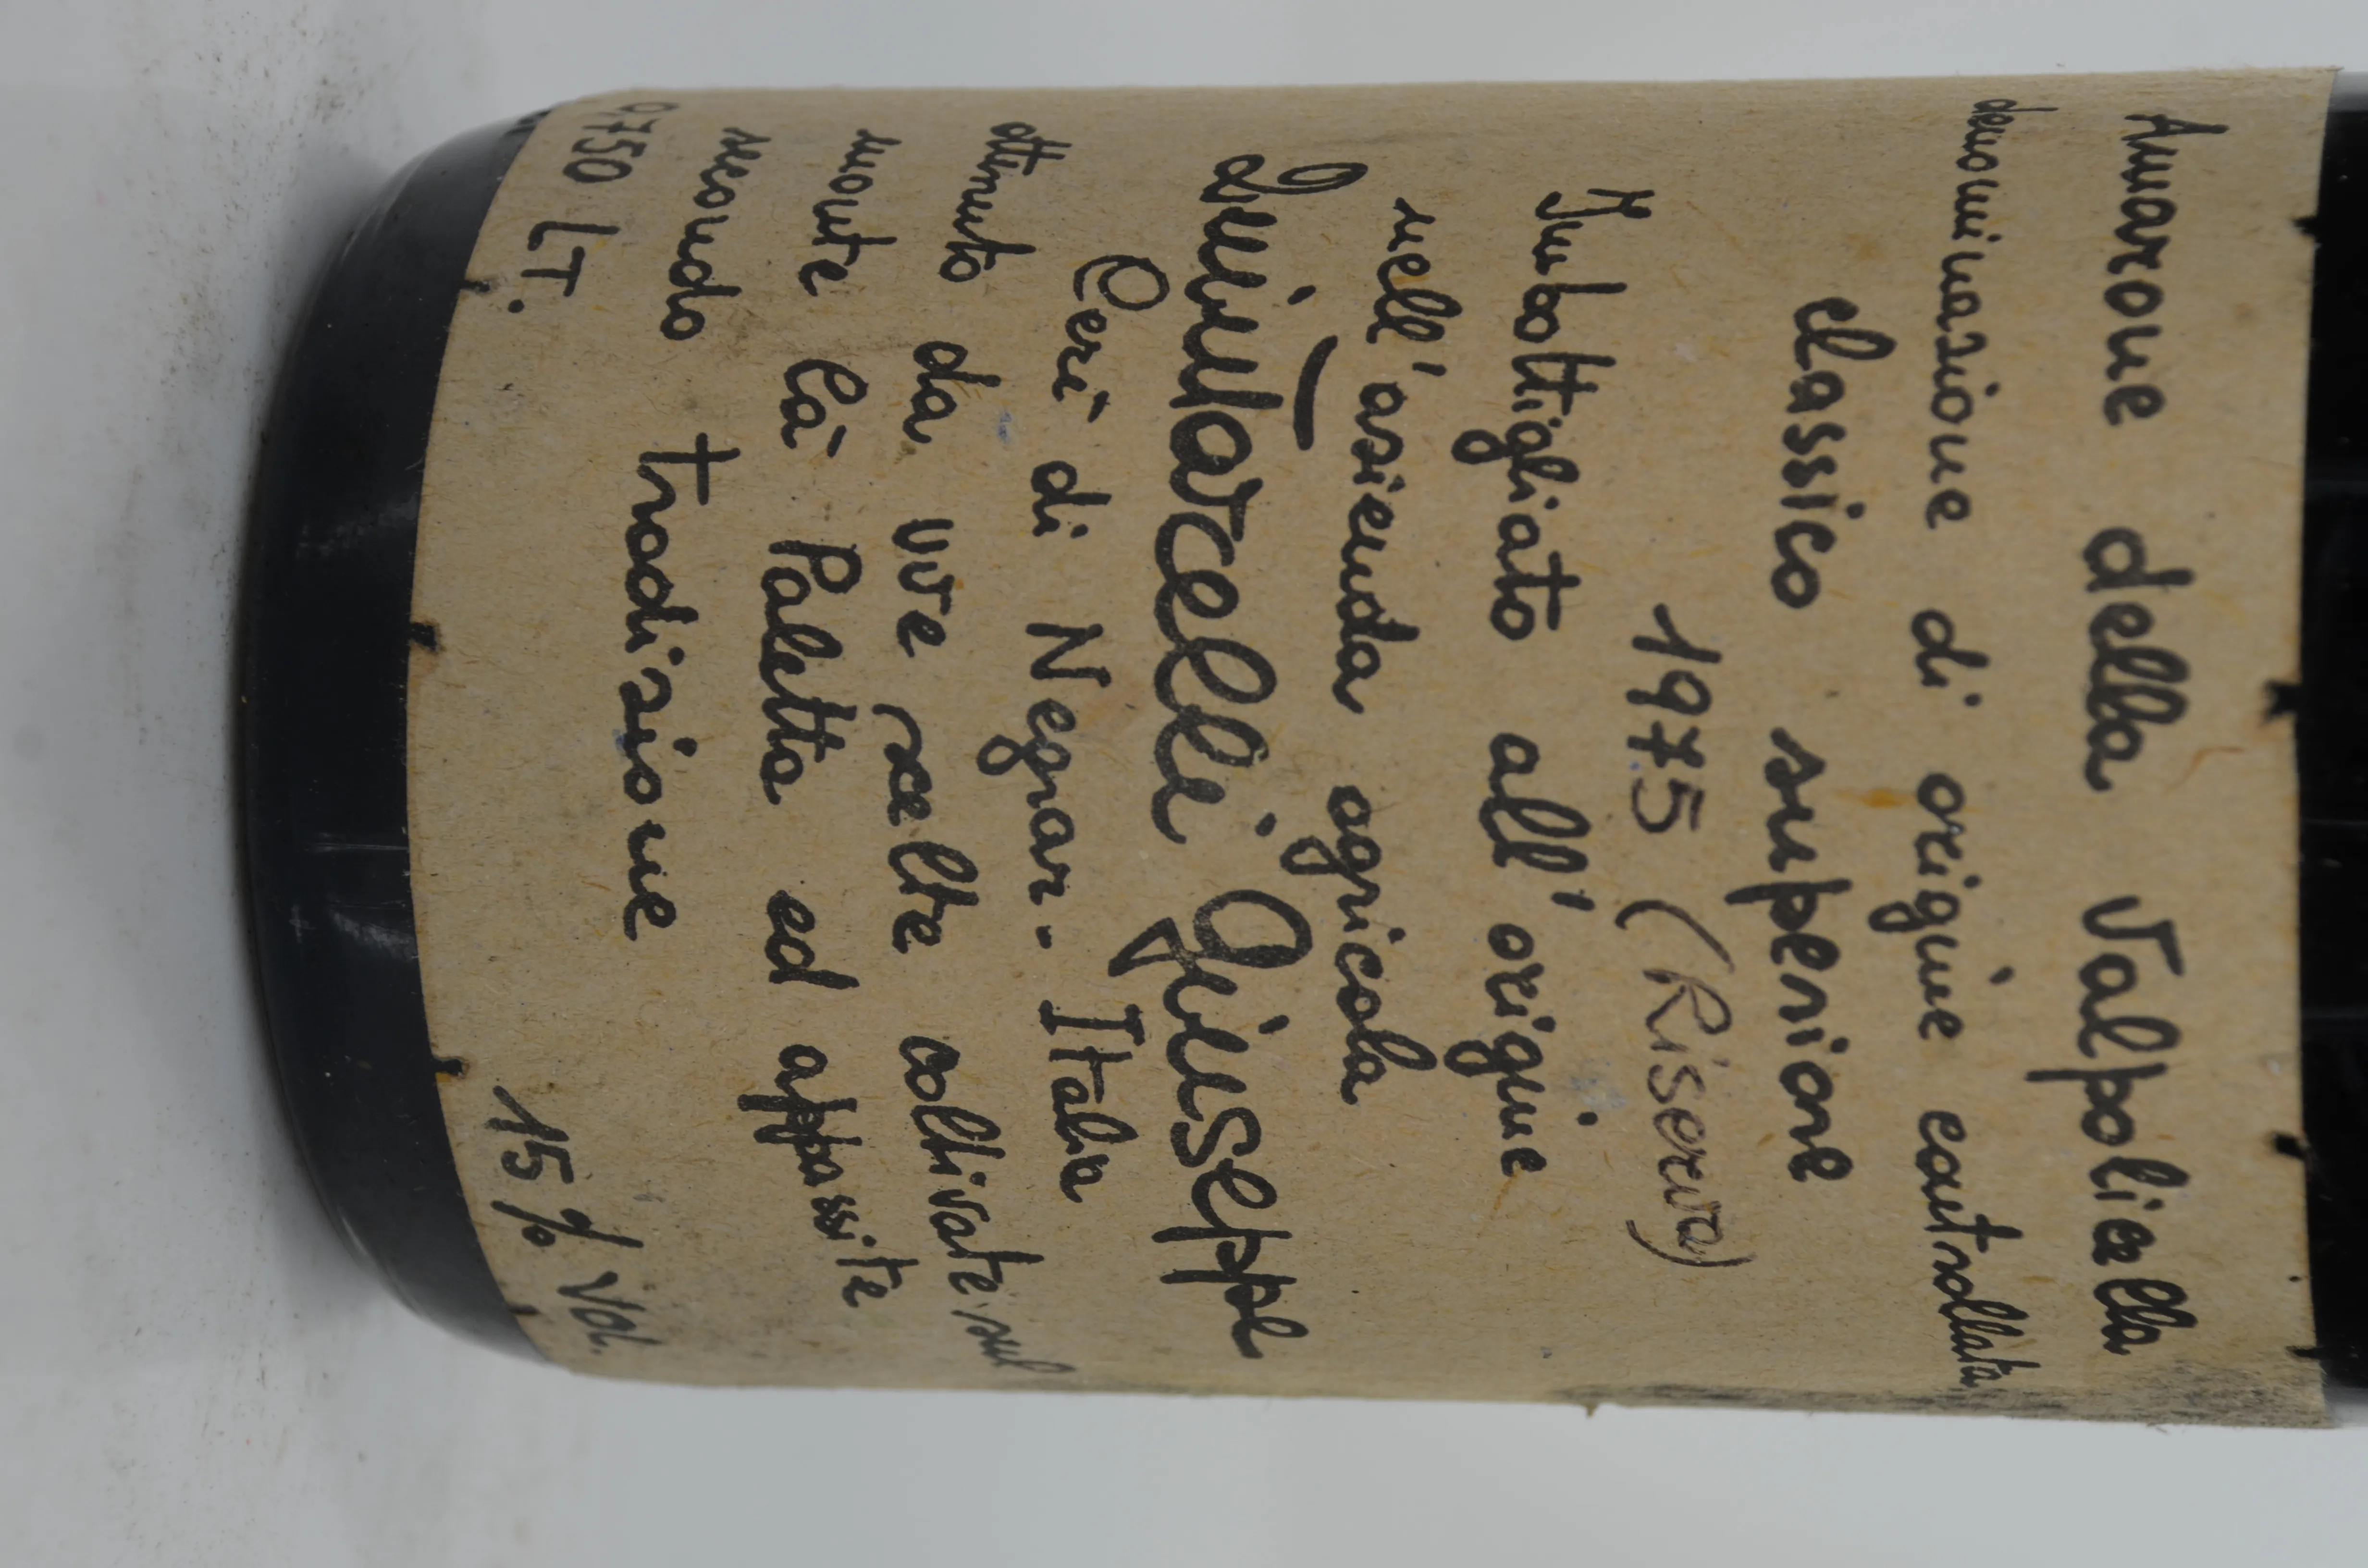 Amarone della Valpolicella
denominazione di origine controllata
classico superiore
1975 (Riserva)
Imbottigliato all'origine
nell'azienda agricola
Quintarelli Giuseppe
Cerè di Negrar - Italia
ottenuto da uve scelte coltivate sul
monte Cà Paletta ed appassite
secondo tradizione
0,750 LT. 15% Vol.